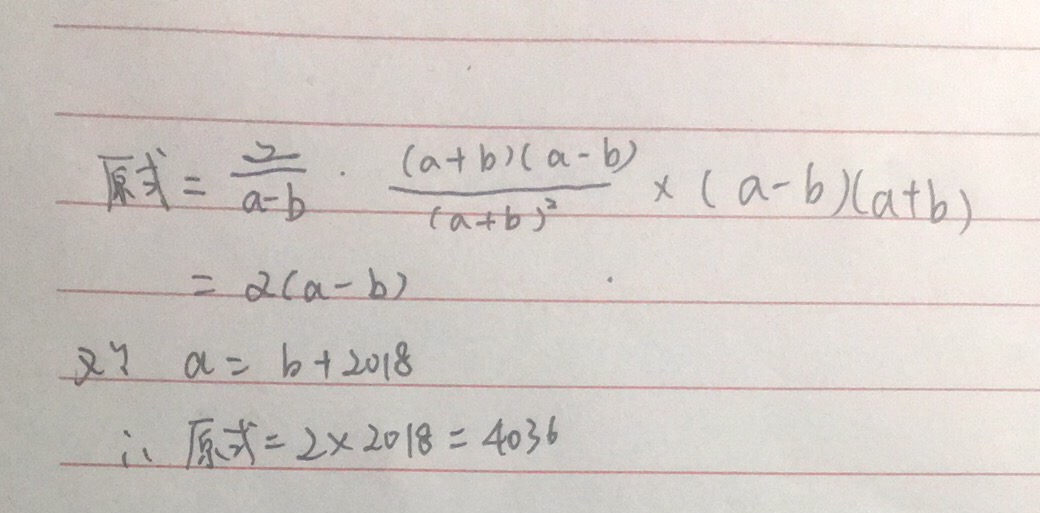 原式 = \frac{2}{a-b} · \frac{(a+b)(a-b)}{(a+b)^2} × (a-b)(a+b)
= 2(a-b)
又∵ a = b+2018
∴ 原式 = 2×2018 = 4036